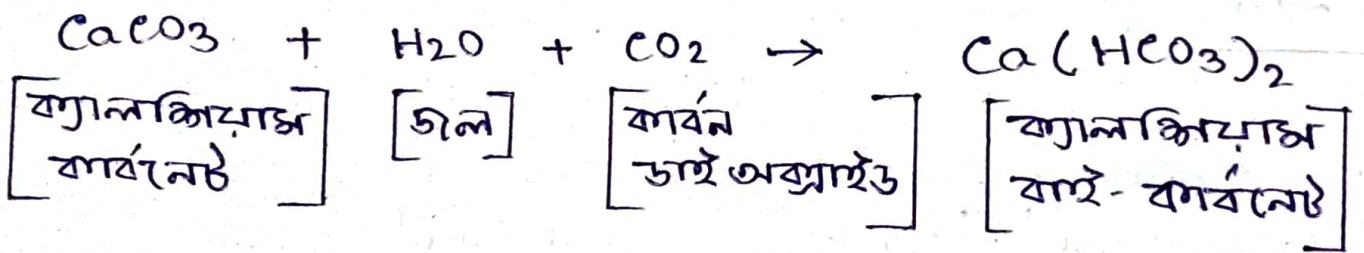 CaCO3 + H2O + CO2 → Ca(HCO3)2
[ক্যালসিয়াম কার্বনেট] [জল] [কার্বন ডাই অক্সাইড] [ক্যালসিয়াম বাই-কার্বনেট]